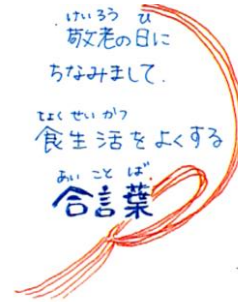 けいろう ひ
敬老の日に
ちなみまして.
しょくせいかつ
食生活をよくする
あいことば
合言葉